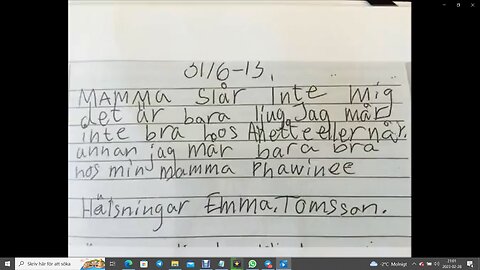 31/6-13.
MAMMA Slår Inte Mig
det är bara ljug Jag mår
inte bra hos Anette eller når
annan jag mår bara bra
hos min mamma Phawinee
Hälsningar Emma.Tomsson.
Skriv här för att söka
-2°C Molnigt
21:01
2023-02-28